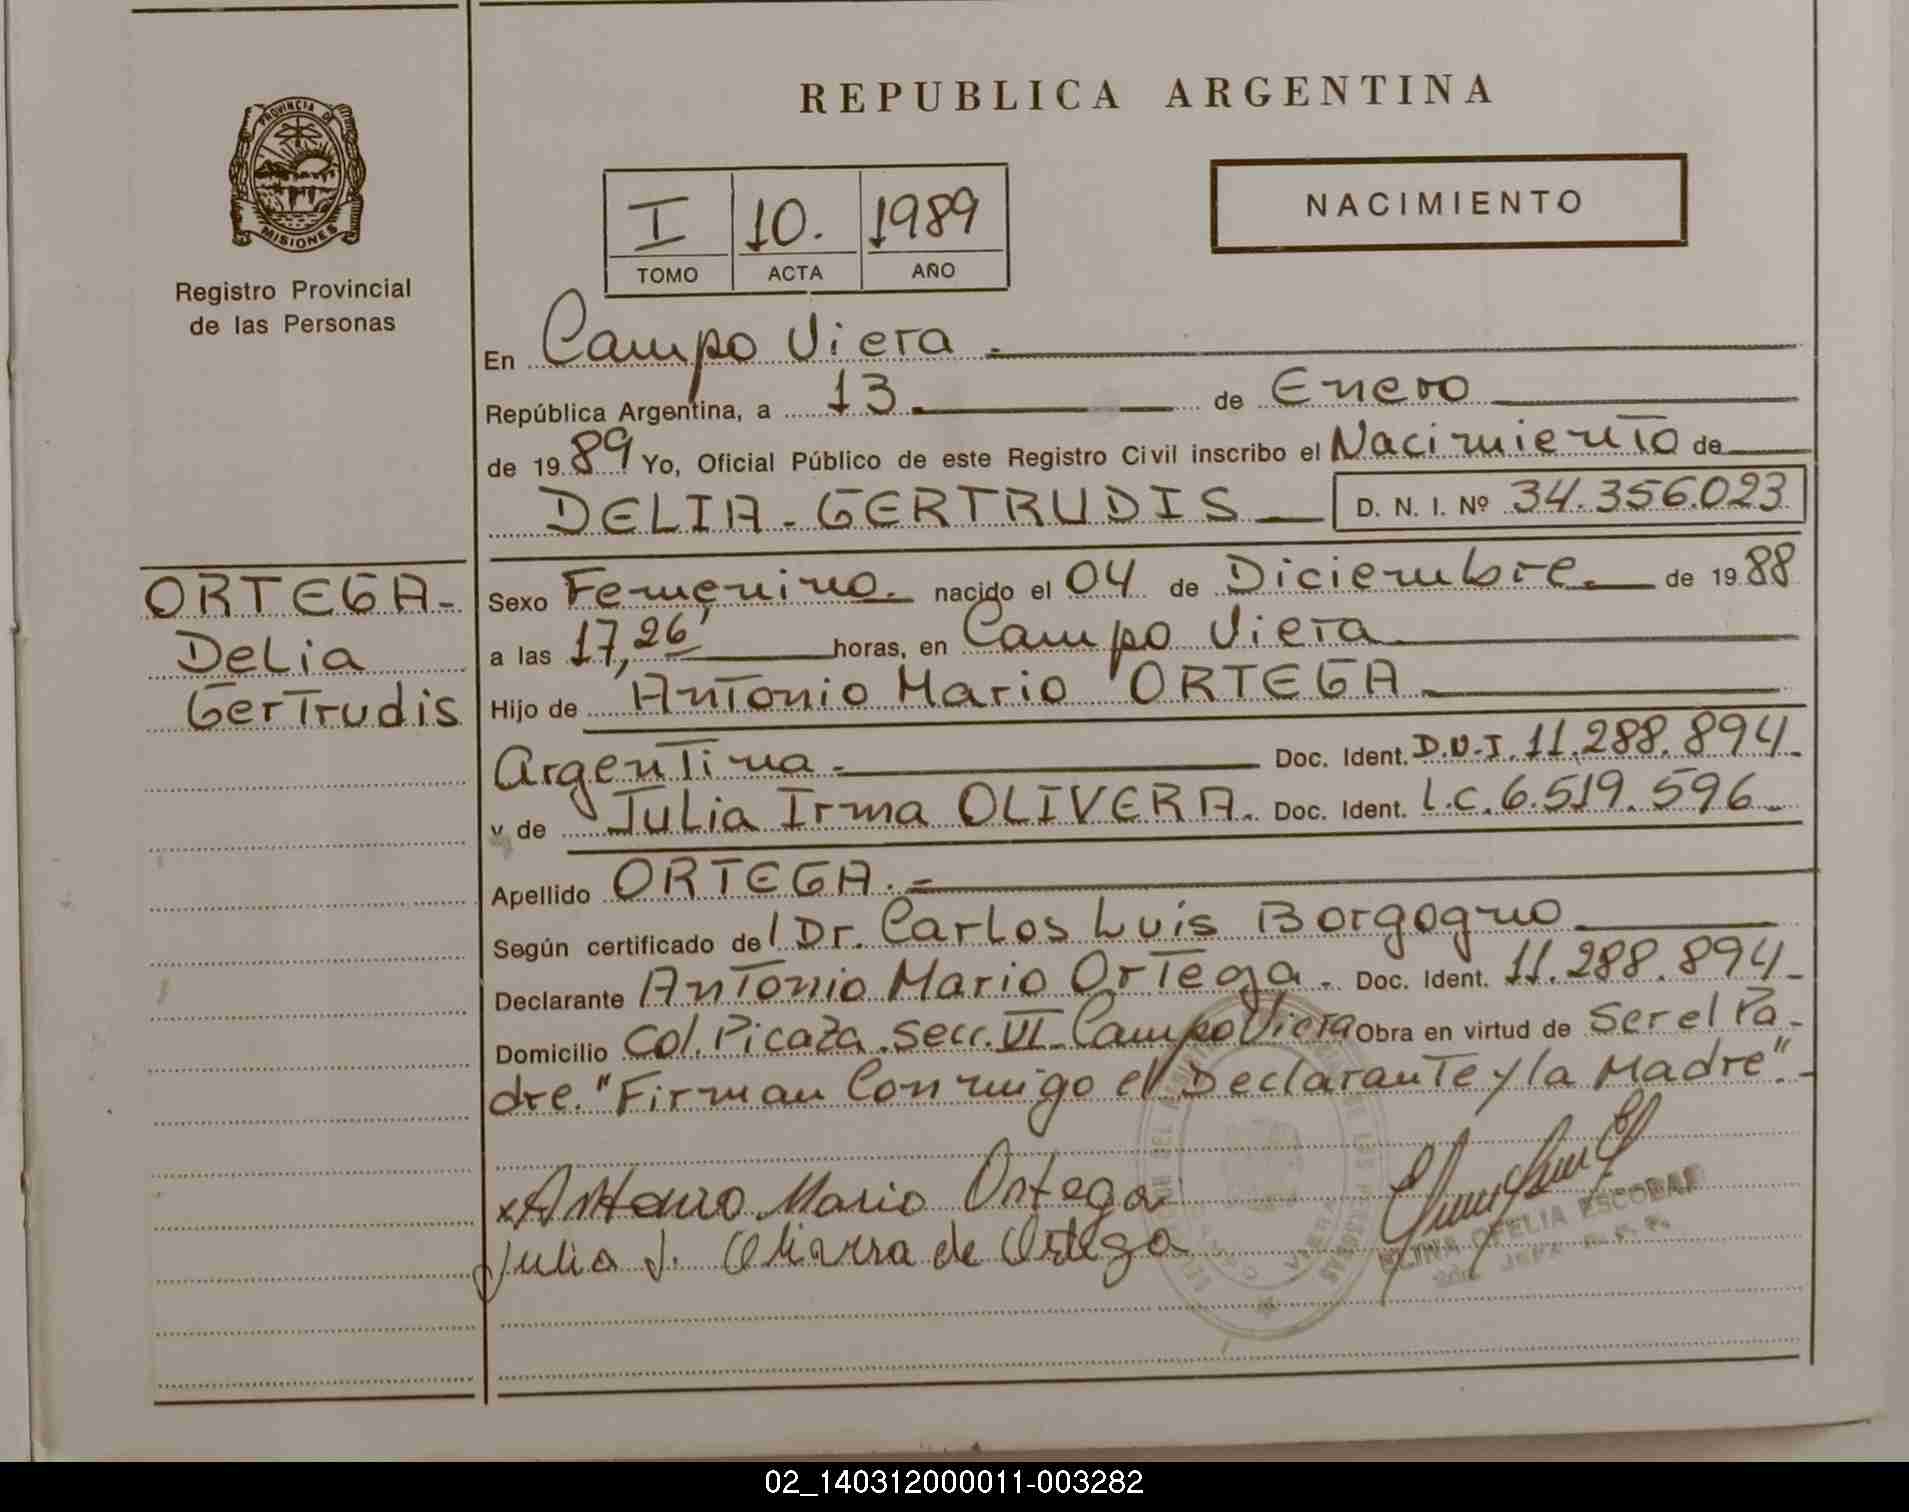 REPUBLICA ARGENTINA
PROVINCIA DE
MISIONES
Registro Provincial
de las Personas
NACIMIENTO
I 10. 1989
TOMO ACTA AÑO
En Campo Viera.
República Argentina, a 13 de Enero
de 1989 Yo, Oficial Público de este Registro Civil inscribo el Nacimiento de
DELIA-GERTRUDIS D. N. I. Nº 34.356.023
ORTEGA-
Delia
Gertrudis
Sexo Femenino. nacido el 04 de Diciembre. de 1988
a las 17,26' horas, en Campo Viera
Hijo de Antonio Mario ORTEGA
Argentina- Doc. Ident. D.N.I. 11.288.894-
y de Julia Irma OLIVERA. Doc. Ident. L.C. 6.519.596-
Apellido ORTEGA.-
Según certificado del Dr. Carlos Luis Borgogno
Declarante Antonio Mario Ortega. Doc. Ident. 11.288.894-
Domicilio Col. Picaza. Secc. VI- Campo Viera Obra en virtud de Ser el Pa-
dre. "Firman Conmigo el Declarante y la Madre".-
x Antonio Mario Ortega
Julia I. Olivera de Ortega
OFELIA ESCOBAR
02_140312000011-003282